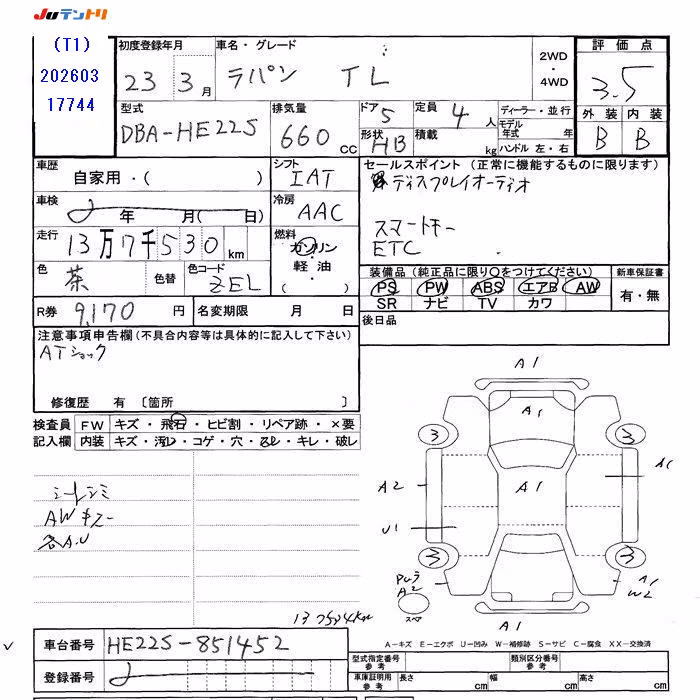 Juテントリ
(T1)
202603
17744
初度登録年月
23 3 月
車名・グレード
ラパン TL
2WD
・
4WD
評価点
3.5
外装 内装
B B
型式
DBA-HE22S
排気量
660 cc
ドア 5
形状 HB
定員 4 人
積載 kg
ディーラー・並行
モデル年式 年
ハンドル 左・右
車歴
自家用・( )
シフト
IAT
車検
年 月( 日)
冷房
AAC
走行
13万7千530 km
燃料
ガソリン
・
軽油
・
色
茶
色替
色コード
ZEL
R券 9,170 円
名変期限 月 日
セールスポイント (正常に機能するものに限ります)
ディスプレイオーディオ
スマートキー
ETC
装備品 (純正品に限り○をつけてください)
PS PW ABS エアB AW
SR ナビ TV カワ
新車保証書
有・無
後日品
注意事項申告欄 (不具合内容等は具体的に記入して下さい)
ATショック
修復歴 有 〔箇所 〕
検査員記入欄
FW キズ・飛石・ヒビ割・リペア跡・×要
内装 キズ・汚レ・コゲ・穴・スレ・キレ・破レ
シートシミ
AWキズ
各A.U
A1
A1
3 3
A1
A2
A1
U1
3 3
A2
A1
W2
スペア
A1
A-キズ E-エクボ U-凹み W-補修跡 S-サビ C-腐食 XX-交換済
車台番号 HE22S-851452
登録番号
型式指定番号
参考
類別区分番号
参考
車庫証明用
参考
長さ cm 幅 cm 高さ cm